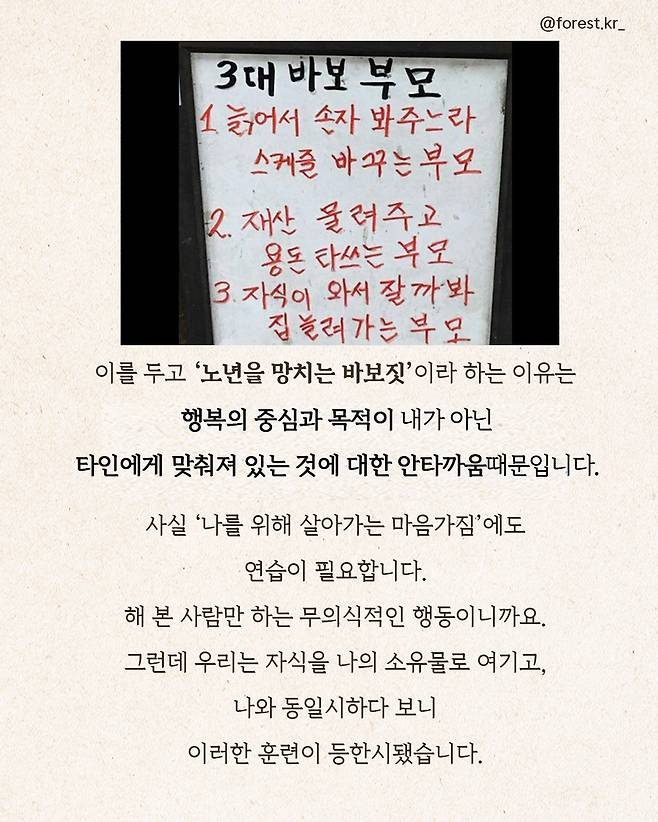 @forest.kr_
3대 바보 부모
1. 늙어서 손자 봐주느라
스케줄 바꾸는 부모
2. 재산 물려주고
용돈 타쓰는 부모
3. 자식이 와서 잘까봐
집 늘려가는 부모
이를 두고 ‘노년을 망치는 바보짓’이라 하는 이유는
행복의 중심과 목적이 내가 아닌
타인에게 맞춰져 있는 것에 대한 안타까움때문입니다.
사실 ‘나를 위해 살아가는 마음가짐’에도
연습이 필요합니다.
해 본 사람만 하는 무의식적인 행동이니까요.
그런데 우리는 자식을 나의 소유물로 여기고,
나와 동일시하다 보니
이러한 훈련이 등한시됐습니다.